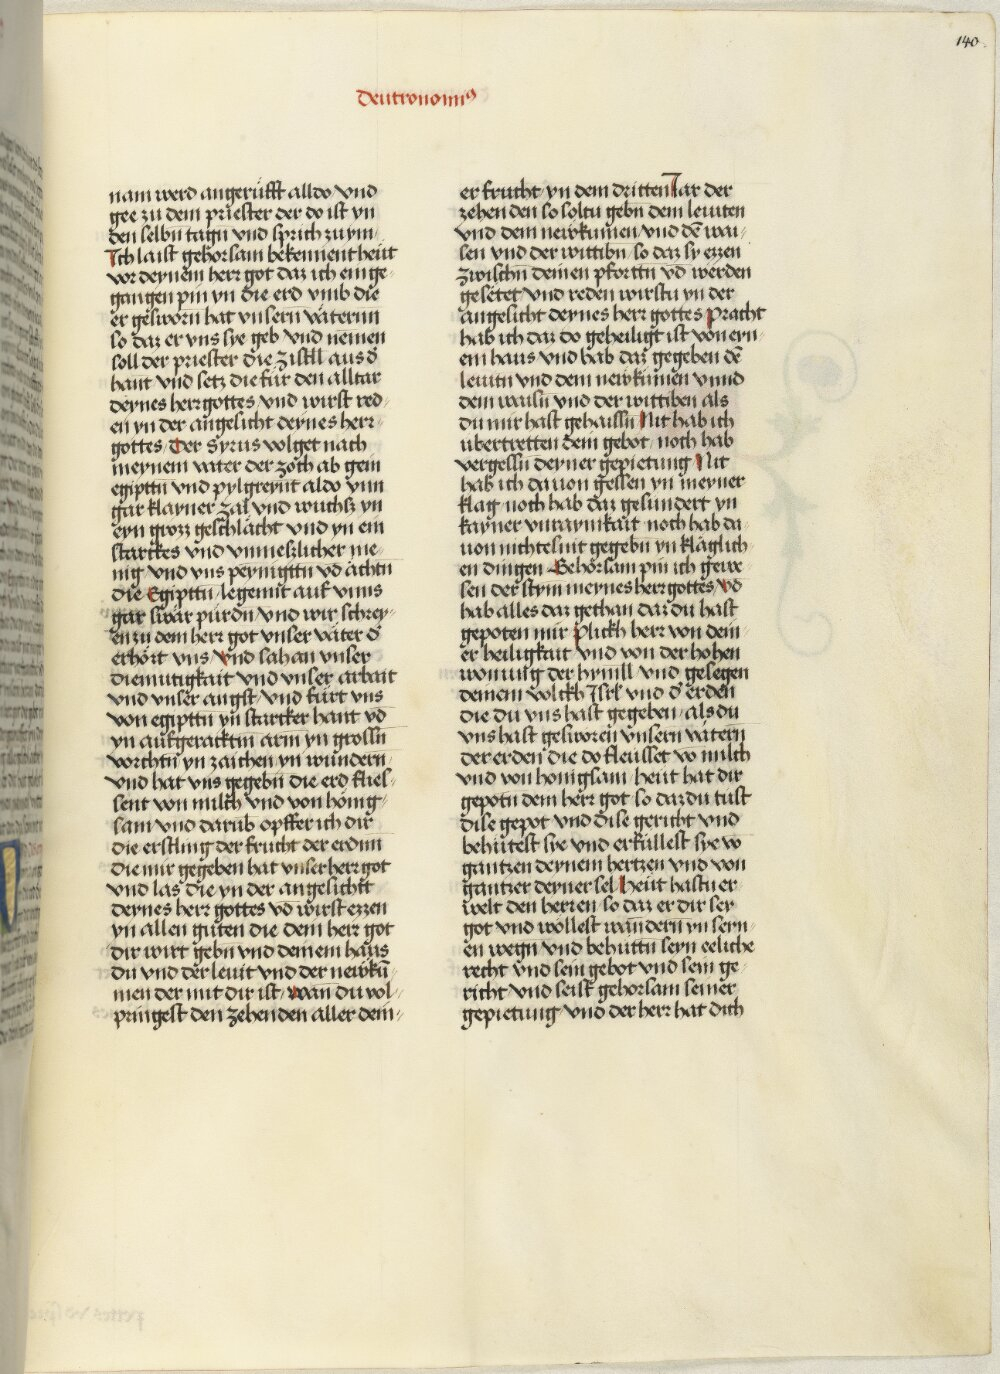 140
Deutronomiꝰ
nam werd angerüfft alldo vnd
gee zu dem priester der do ist yn
den selbn tagn vnd sprich zu ym
Ich laist gehorsam bekennent heut
vor deynem herr got daz ich einge-
gangen pin yn die erd vmb die
er gesworn hat vnsern vaternn
so daz er vns sye geb vnd nemen
soll der priester die zistl aus d̉
hant vnd setz die fur den alltar
deynes herr gottes vnd wirst red-
en yn der angesicht deynes herr
gottes Der Syrus volget nach
meynem vater der zoch ab gein
egiptn vnd pylgreynt aldo vnn
gar klayner zal vnd wuchsz yn
eyn grozz geschlächt vnd yn ein
starckes vnd vnmeszlicher me-
nig vnd vns peynigttn vd ächtn
die Egipttn legennt auf vnns
gar swar pürdn vnd wir schrey-
en zu dem herr got vnser väter d̉
erhört vns vnd sah an vnser
diemutigkait vnd vnser arbait
vnd vnser angst vnd fürt vns
von egipttn yn starcker hant vd
yn aufgeracktm arm yn grossn
vorchtn yn zaichen yn wundern
vnd hat vns gegebn die erd flies-
sent von milch vnd von hönig-
sam vnd darüb opffer ich dir
die erstling der frucht der erdnn
die mir gegeben hat vnser herr got
vnd las die yn der angesichtt
deynes herr gottes vd wirst ezzen
yn allen guten die dem herr got
dir wirt gebn vnd deinem haus
du vnd der leuit vnd der newkū-
men der mit dir ist wan du vol-
pringest den zehenden aller dein-
er frucht yn dem dritten Iar der
zehenden so soltu gebn dem leuiten
vnd dem newkumen vnd dē wai-
sen vnd der wittibn so daz sy ezzen
zwischn deinen pforttn vd werden
gesetet vnd reden wirstu yn der
angesicht deynes herr gottes Pracht
hab ich daz do geheiligt ist von eyn-
em haus vnd hab daz gegeben dē
leuitn vnd dem newkumen vnnd
dem waisn vnd der wittiben als
du mir hast gehaissn Nit hab ich
vbertretten dem gebot noch hab
vergessn deyner gepietung Nit
hab ich dauon gessen yn meyner
klag noch hab daz gesundert yn
kayner vnraynikait noch hab da-
uon nichtesnit gegebn yn kläglich-
en dingen Gehorsam pin ich gewe-
sen der stym meynes herr gottes vd
hab alles daz gethan daz du hast
gepoten mir Plickh herr von dein-
er heiligkait vnd von der hohen
wonung der hymll vnd gesegen
deinem volckh Isrl vnd d̉ erden
die du vns hast gegeben als du
vns hast gesworen vnsern vätern
der erden die do fleusset vō milch
vnd von honigsam heut hat dir
gepotn dem herr got so daz du tust
dise gepot vnd dise gericht vnd
behutest sye vnd erfüllest sye vō
gantzen deynem hertzen vnd von
gantzer deyner sel Heut hastu er-
welt den herren so daz er dir sey
got vnd wöllest wandern yn sein-
en wegn vnd behuttn seyn eeliche
recht vnd sein gebot vnd sein ge-
richt vnd seist gehorsam seiner
gepietung vnd der herr hat dich